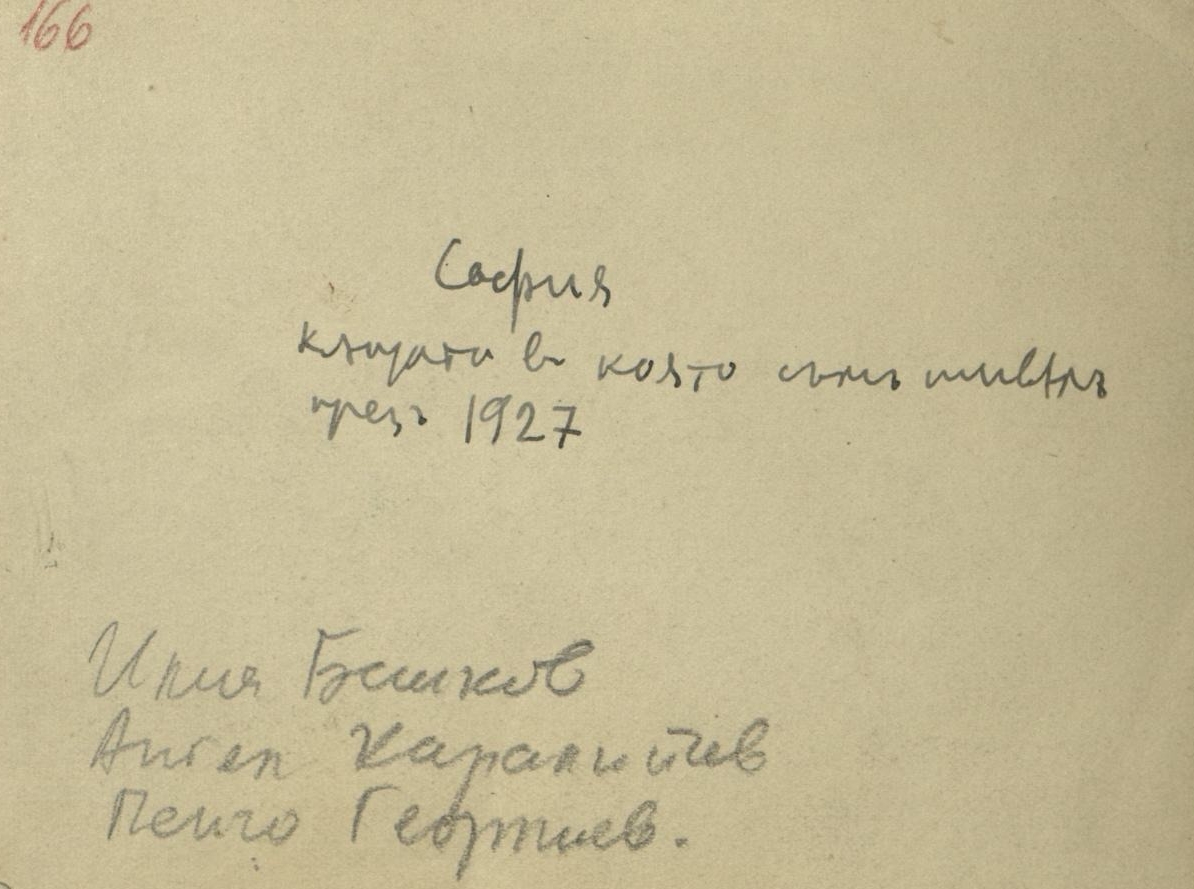 166
София
къщата в която съмъ живѣлъ
презъ 1927
Илия Бешков
Ангел Каралийчев
Пенчо Георгиев.